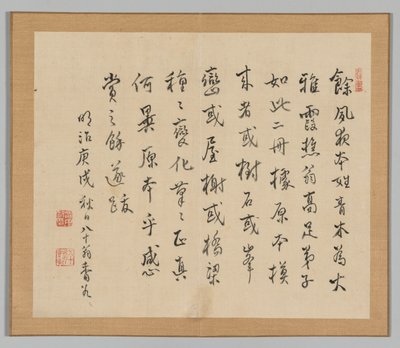 餘夙夜本姓青木為大
雅霞樵翁高足弟子
如此二冊據原本模
来者或樹石或峯
巒或屋榭或橋梁
種々變化筆々正真
何異原本乎感
賞之餘遂跋
明治庚戌秋日八十翁香